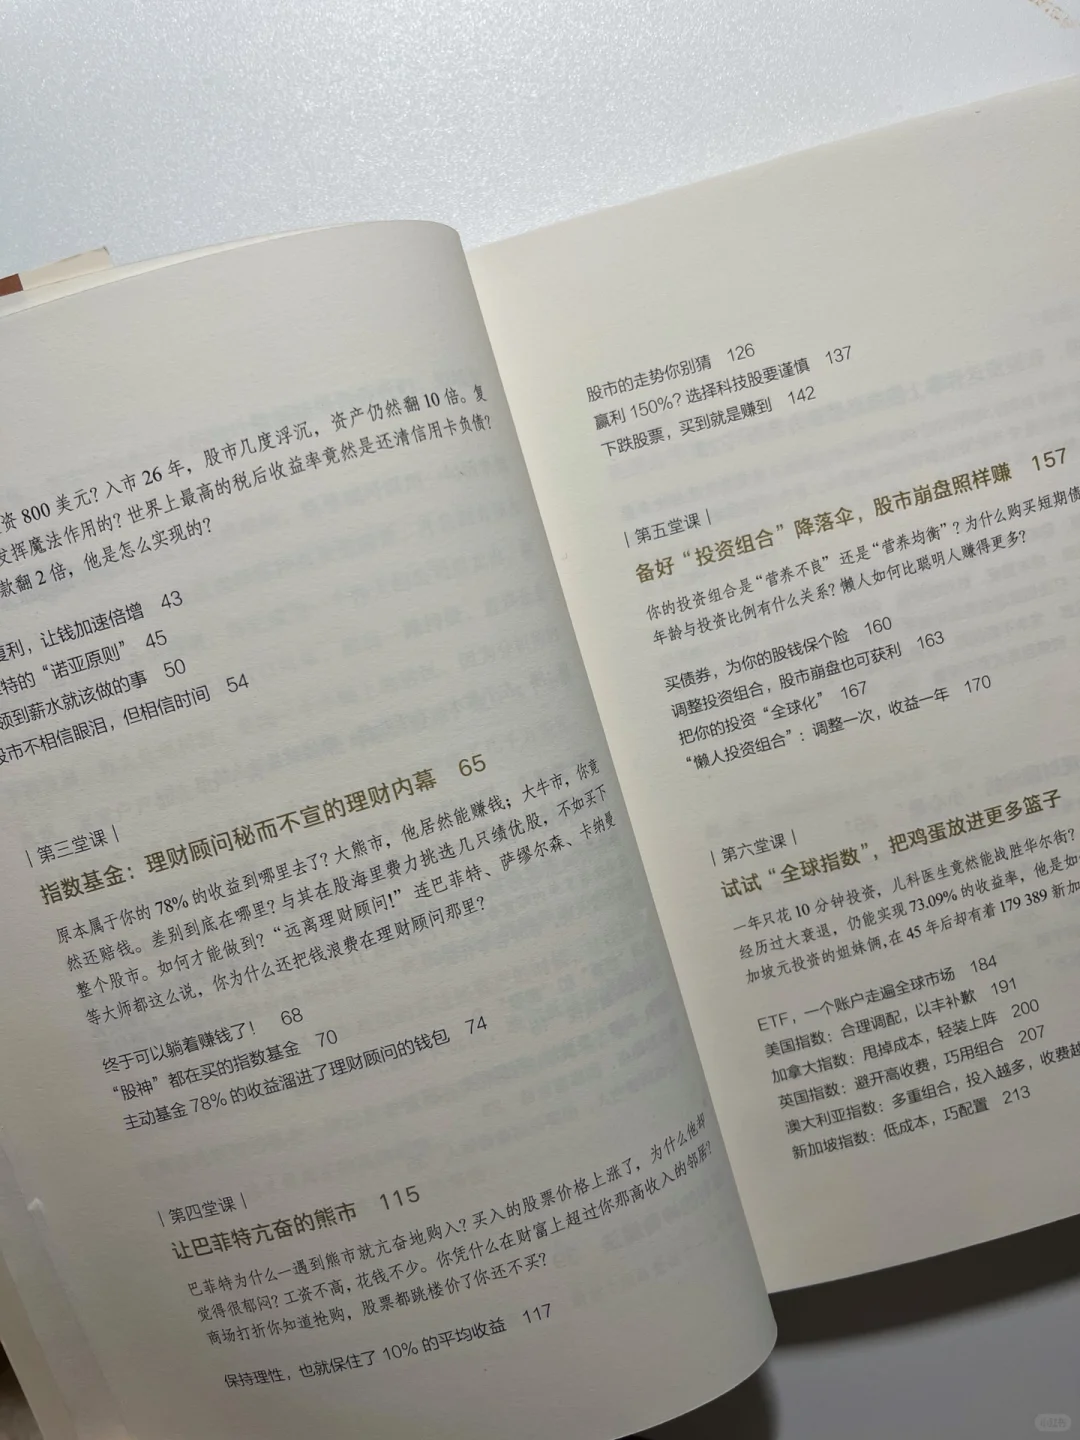 资 800 美元？入市 26 年，股市几度浮沉，资产仍然翻 10 倍。复
发挥魔法作用的？世界上最高的税后收益率竟然是还清信用卡负债？
款翻 2 倍，他是怎么实现的？
复利，让钱加速倍增 43
特的“诺亚原则” 45
领到薪水就该做的事 50
股市不相信眼泪，但相信时间 54
｜第三堂课｜
指数基金：理财顾问秘而不宣的理财内幕 65
原本属于你的 78% 的收益到哪里去了？大熊市，他居然能赚钱；大牛市，你竟
然还赔钱。差别到底在哪里？与其在股海里费力挑选几只绩优股，不如买下
整个股市。如何才能做到？“远离理财顾问！”连巴菲特、萨缪尔森、卡纳曼
等大师都这么说，你为什么还把钱浪费在理财顾问那里？
终于可以躺着赚钱了！ 68
“股神”都在买的指数基金 70
主动基金 78% 的收益溜进了理财顾问的钱包 74
｜第四堂课｜
让巴菲特亢奋的熊市 115
巴菲特为什么一遇到熊市就亢奋地购入？买入的股票价格上涨了，为什么他却
觉得很郁闷？工资不高，花钱不少。你凭什么在财富上超过你那高收入的邻居？
商场打折你知道抢购，股票都跳楼价了你还不买？
保持理性，也就保住了 10% 的平均收益 117
股市的走势你别猜 126
赢利 150%？选择科技股要谨慎 137
下跌股票，买到就是赚到 142
｜第五堂课｜
备好“投资组合”降落伞，股市崩盘照样赚 157
你的投资组合是“营养不良”还是“营养均衡”？为什么购买短期债
年龄与投资比例有什么关系？懒人如何比聪明人赚得更多？
买债券，为你的股钱保个险 160
调整投资组合，股市崩盘也可获利 163
把你的投资“全球化” 167
“懒人投资组合”：调整一次，收益一年 170
｜第六堂课｜
试试“全球指数”，把鸡蛋放进更多篮子
一年只花 10 分钟投资，儿科医生竟然能战胜华尔街？
经历过大衰退，仍能实现 73.09% 的收益率，他是如
加坡元投资的姐妹俩，在 45 年后却有着 179 389 新加
ETF，一个账户走遍全球市场 184
美国指数：合理调配，以丰补歉 191
加拿大指数：甩掉成本，轻装上阵 200
英国指数：避开高收费，巧用组合 207
澳大利亚指数：多重组合，投入越多，收费越
新加坡指数：低成本，巧配置 213